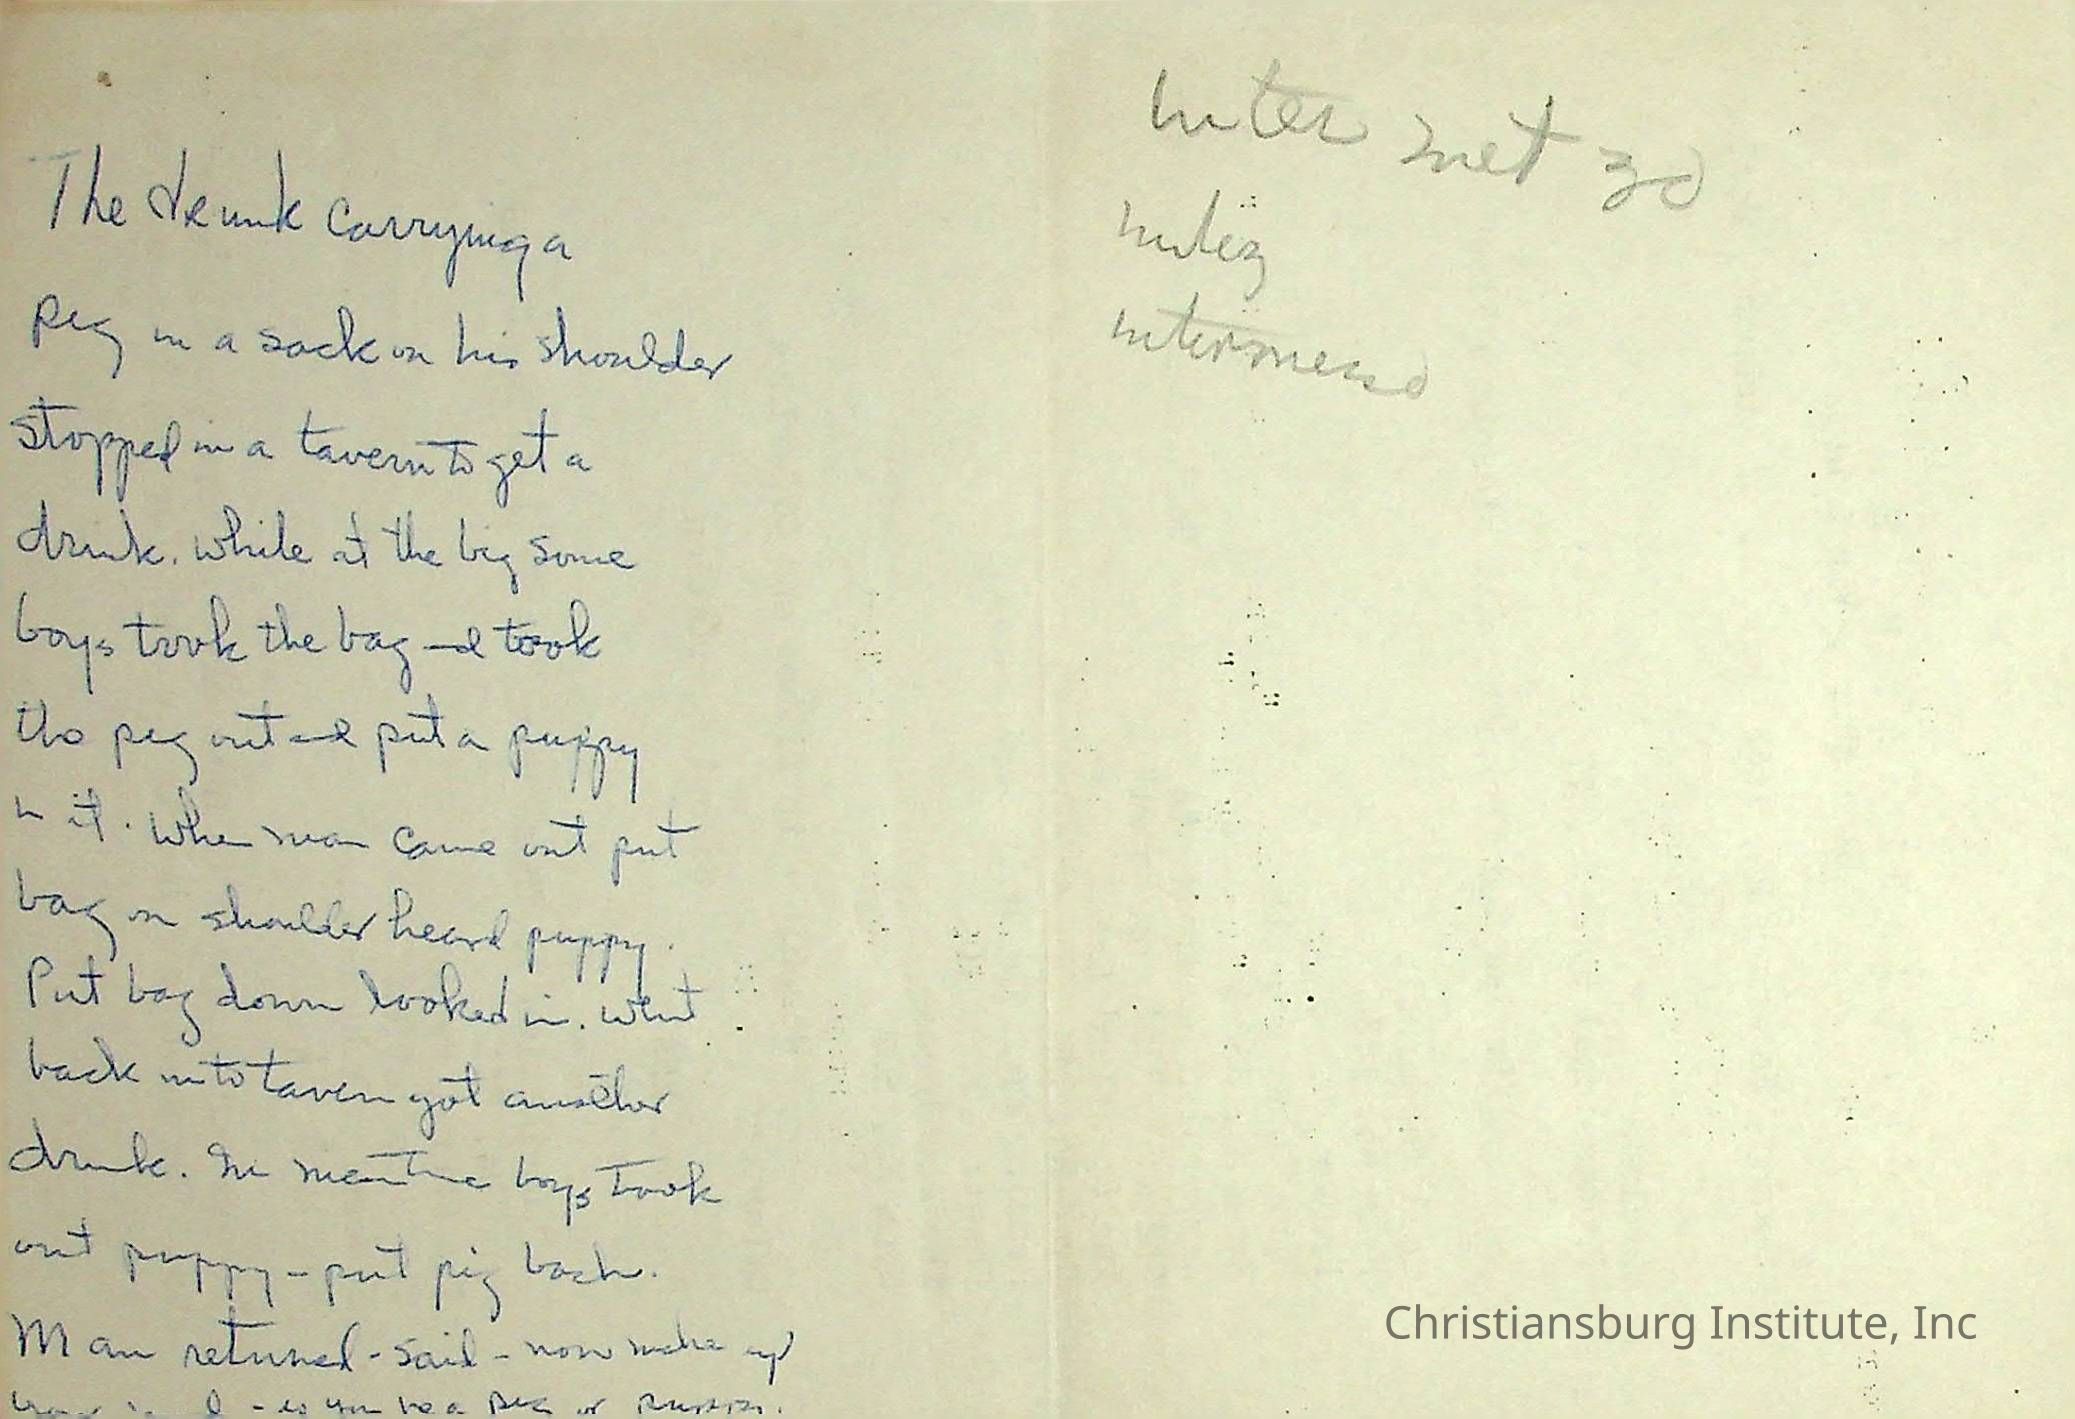 The drunk carrying a
pig in a sack on his shoulder
stopped in a tavern to get a
drink. while at the big some
boys took the bag and took
the pig out and put a puppy
in it. When man came out put
bag on shoulder heard puppy.
Put bag down looked in. went
back into taven got another
drink. In meantime boys took
out puppy - put pig back.
Man returned - said - now make up
your mind - is you be a pig or puppy.
inter met zo
intermezzo
Christiansburg Institute, Inc